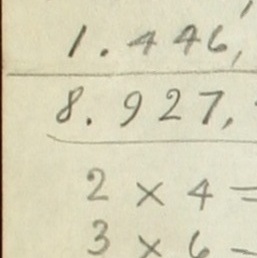 1.446,
8.927,
2 × 4 =
3 × 6